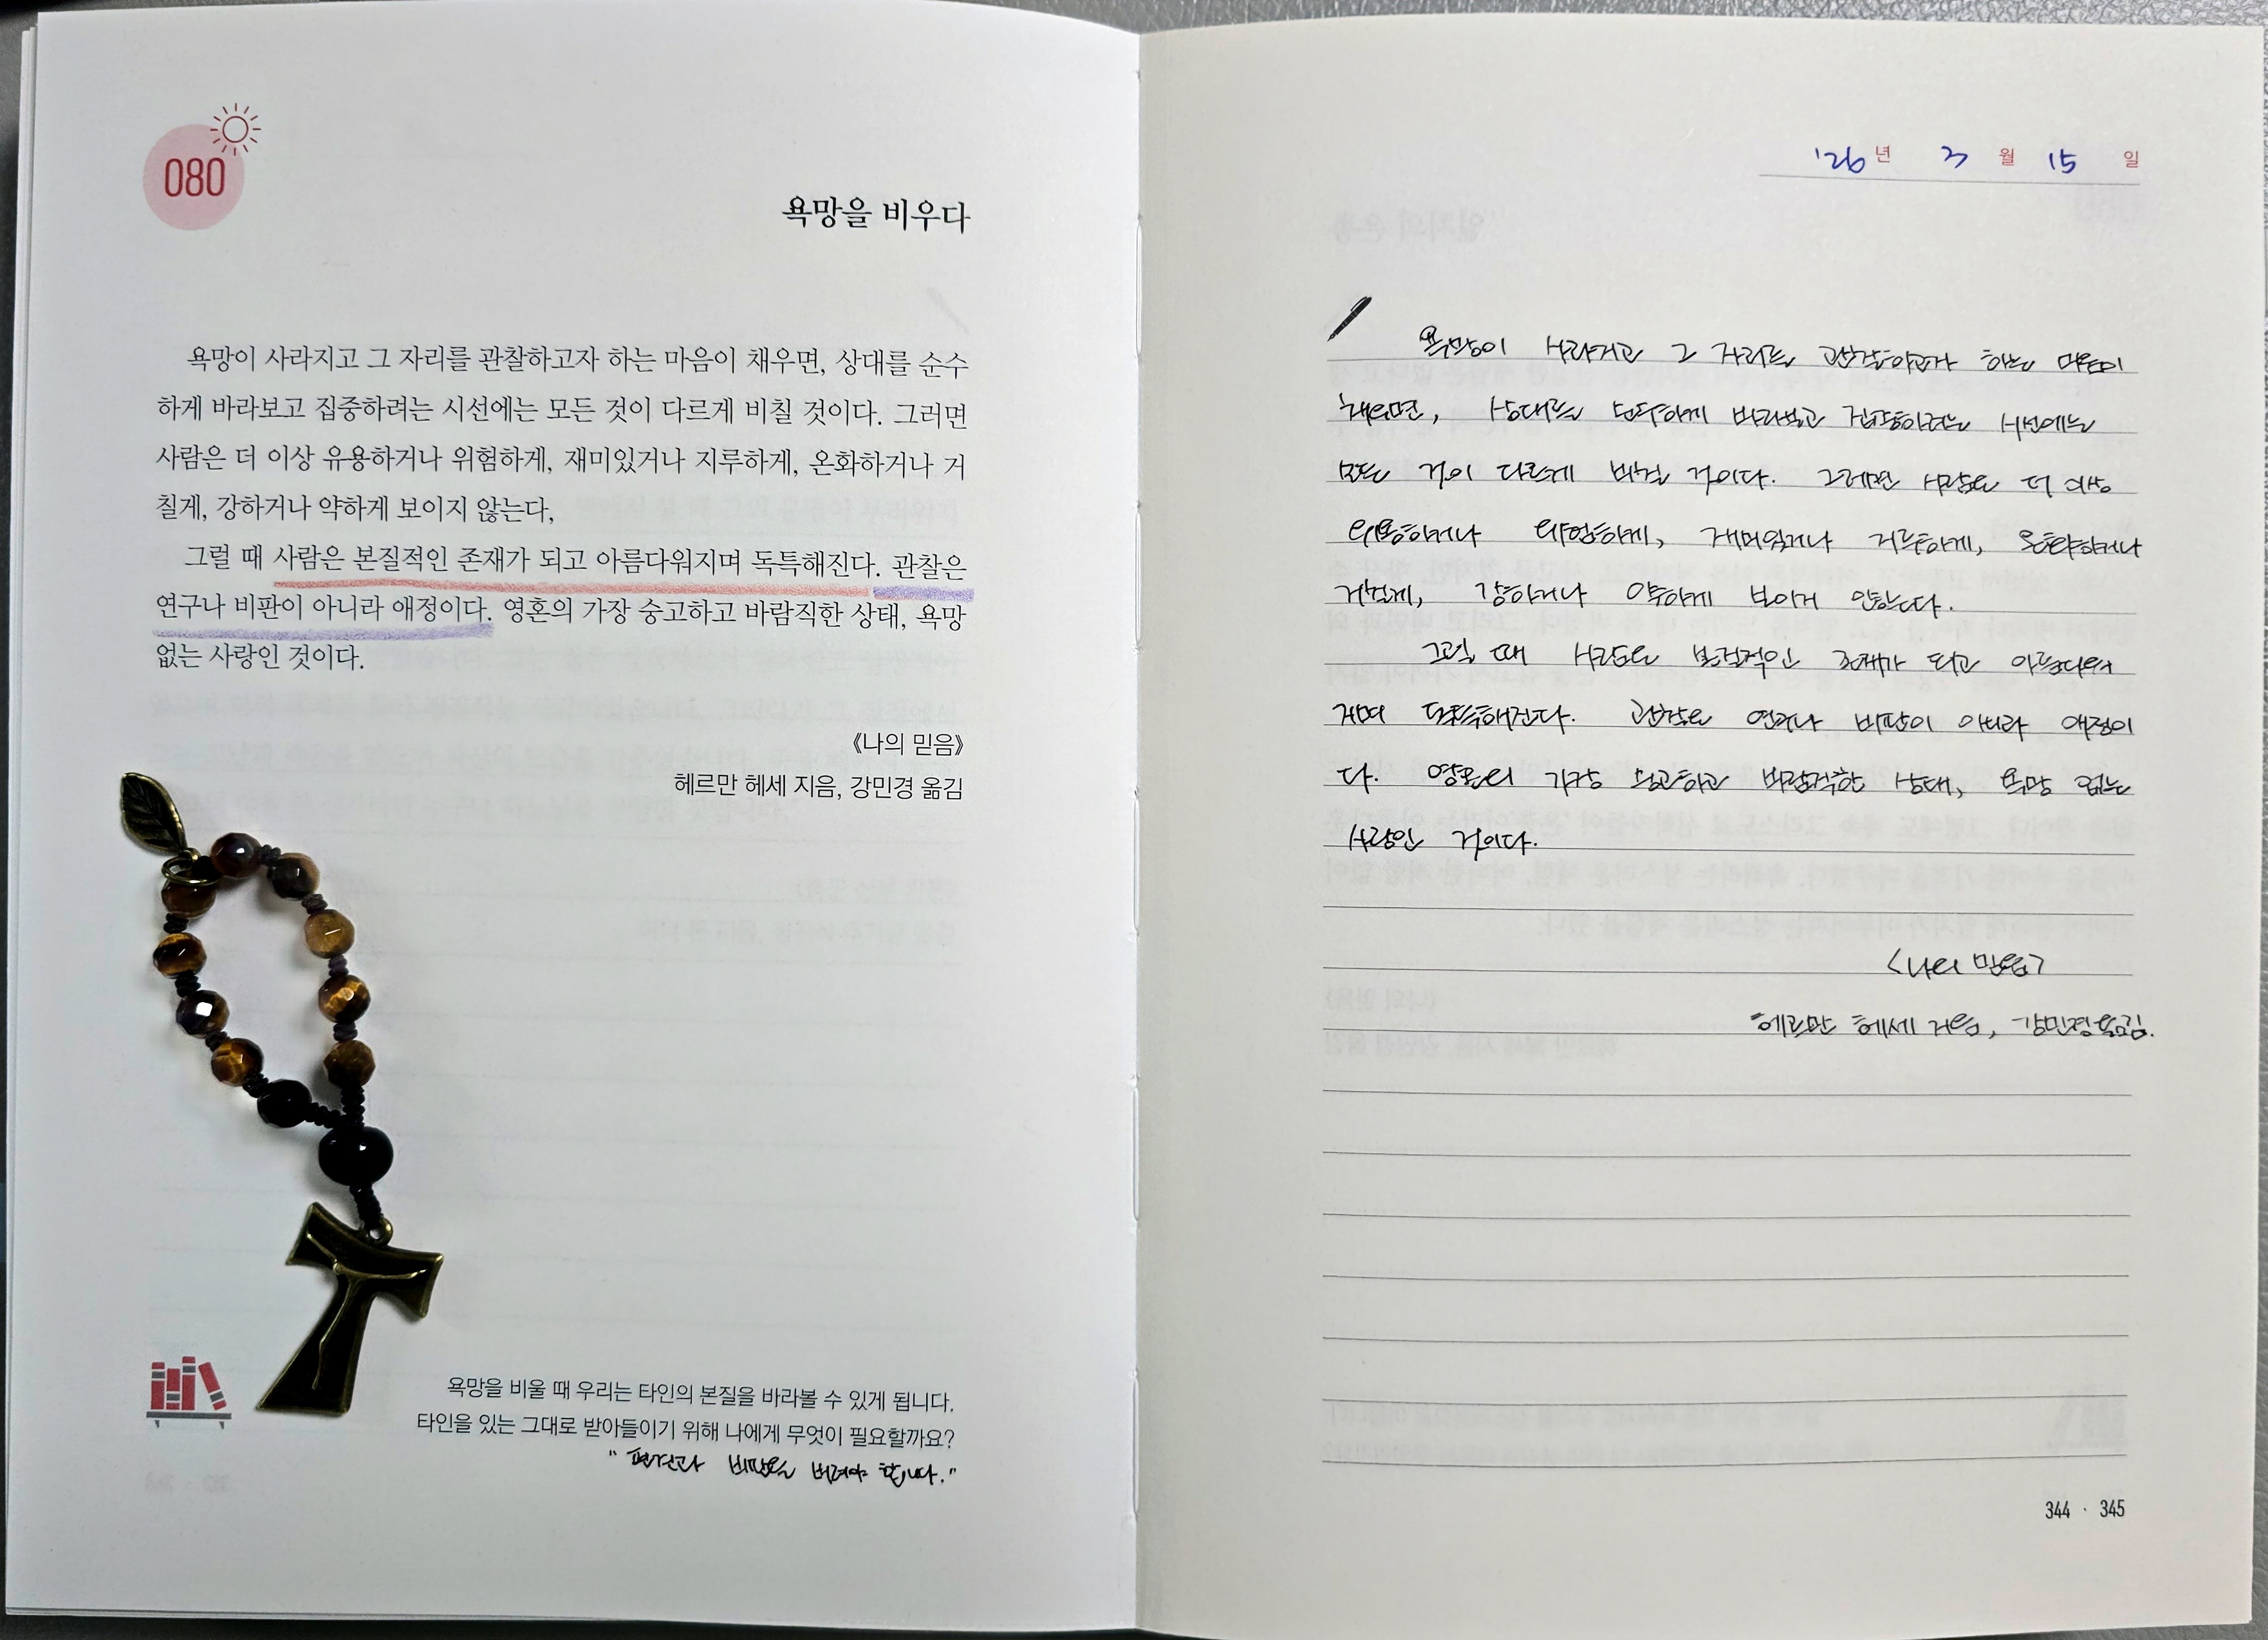 080
욕망을 비우다
욕망이 사라지고 그 자리를 관찰하고자 하는 마음이 채우면, 상대를 순수
하게 바라보고 집중하려는 시선에는 모든 것이 다르게 비칠 것이다. 그러면
사람은 더 이상 유용하거나 위험하게, 재미있거나 지루하게, 온화하거나 거
칠게, 강하거나 약하게 보이지 않는다,
그럴 때 사람은 본질적인 존재가 되고 아름다워지며 독특해진다. 관찰은
연구나 비판이 아니라 애정이다. 영혼의 가장 숭고하고 바람직한 상태, 욕망
없는 사랑인 것이다.
《나의 믿음》
헤르만 헤세 지음, 강민경 옮김
욕망을 비울 때 우리는 타인의 본질을 바라볼 수 있게 됩니다.
타인을 있는 그대로 받아들이기 위해 나에게 무엇이 필요할까요?
"편견과 비판을 버려야 합니다."
'26년 3월 15일
욕망이 사라지고 그 자리를 관찰하고자 하는 마음이
채우면, 상대를 순수하게 바라보고 집중하려는 시선에는
모든 것이 다르게 비칠 것이다. 그러면 사람은 더 이상
유용하거나 위험하게, 재미있거나 지루하게, 온화하거나
거칠게, 강하거나 약하게 보이지 않는다.
그럴 때 사람은 본질적인 존재가 되고 아름다워
지며 독특해진다. 관찰은 연구나 비판이 아니라 애정이
다. 영혼의 가장 숭고하고 바람직한 상태, 욕망 없는
사랑인 것이다.
<나의 믿음>
헤르만 헤세 지음, 강민경 옮김.
344 · 345